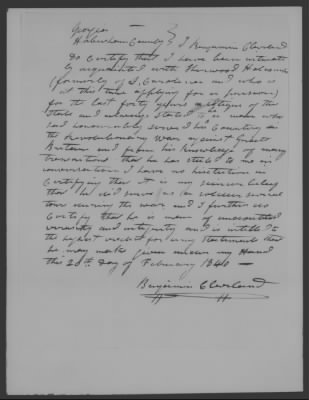 Georgia
Habersham County } I Benjamin Cleveland
Do Certify that I have been intimately
acquainted with Sherwood
(formerly of S. Carolina and who is
at this time applying for a pension)
for the last forty years a citizen of this
State and always stated to be a man who
had honorably served his Country in
the Revolutionary War against Great
Britain and from his Knowledge of many
transactions that he has stated to me in
conversation I have no hesitation in
Certifying that it is my sincere belief
that he did serve as a soldier several
tours during the war and I further
Certify that he is man of undoubted
veracity and integrity and is intitled to
the highest credit for any Statements that
he may make given under my Hand
this 20th Day of February 1840 —
Benjamin Cleveland